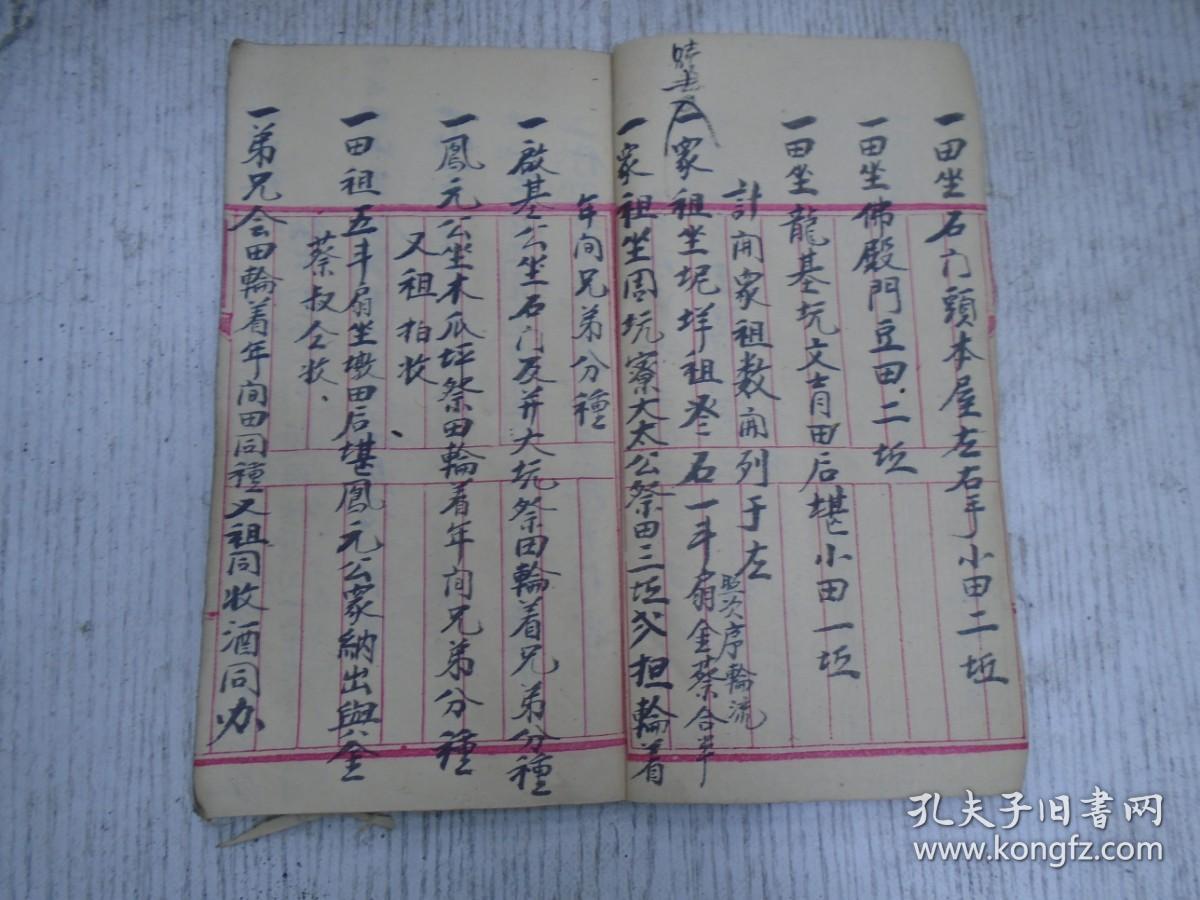 一田坐石门頭本屋左右手小田二坵
一田坐佛殿門豆田、二坵
一田坐龍基坑文青田后堪小田一坵
計開衆祖数開列于左
照次序輪流
一衆祖坐坭垟祖 石一斗扇金蔡合半
一衆祖坐園坑寮大太公祭田三坵 担輪着
年间兄弟分種
一啟基公坐石门及并大坑祭田輪着兄弟分種
一鳳元公坐木瓜坪祭田輪着年间兄弟分種
又祖拍收
一田祖五斗扇坐墩田后堪鳳元公衆納出與金
蔡叔仝收、
一弟兄会田輪着年间田同種又祖同收酒同办
孔夫子旧书网
www.kongfz.com